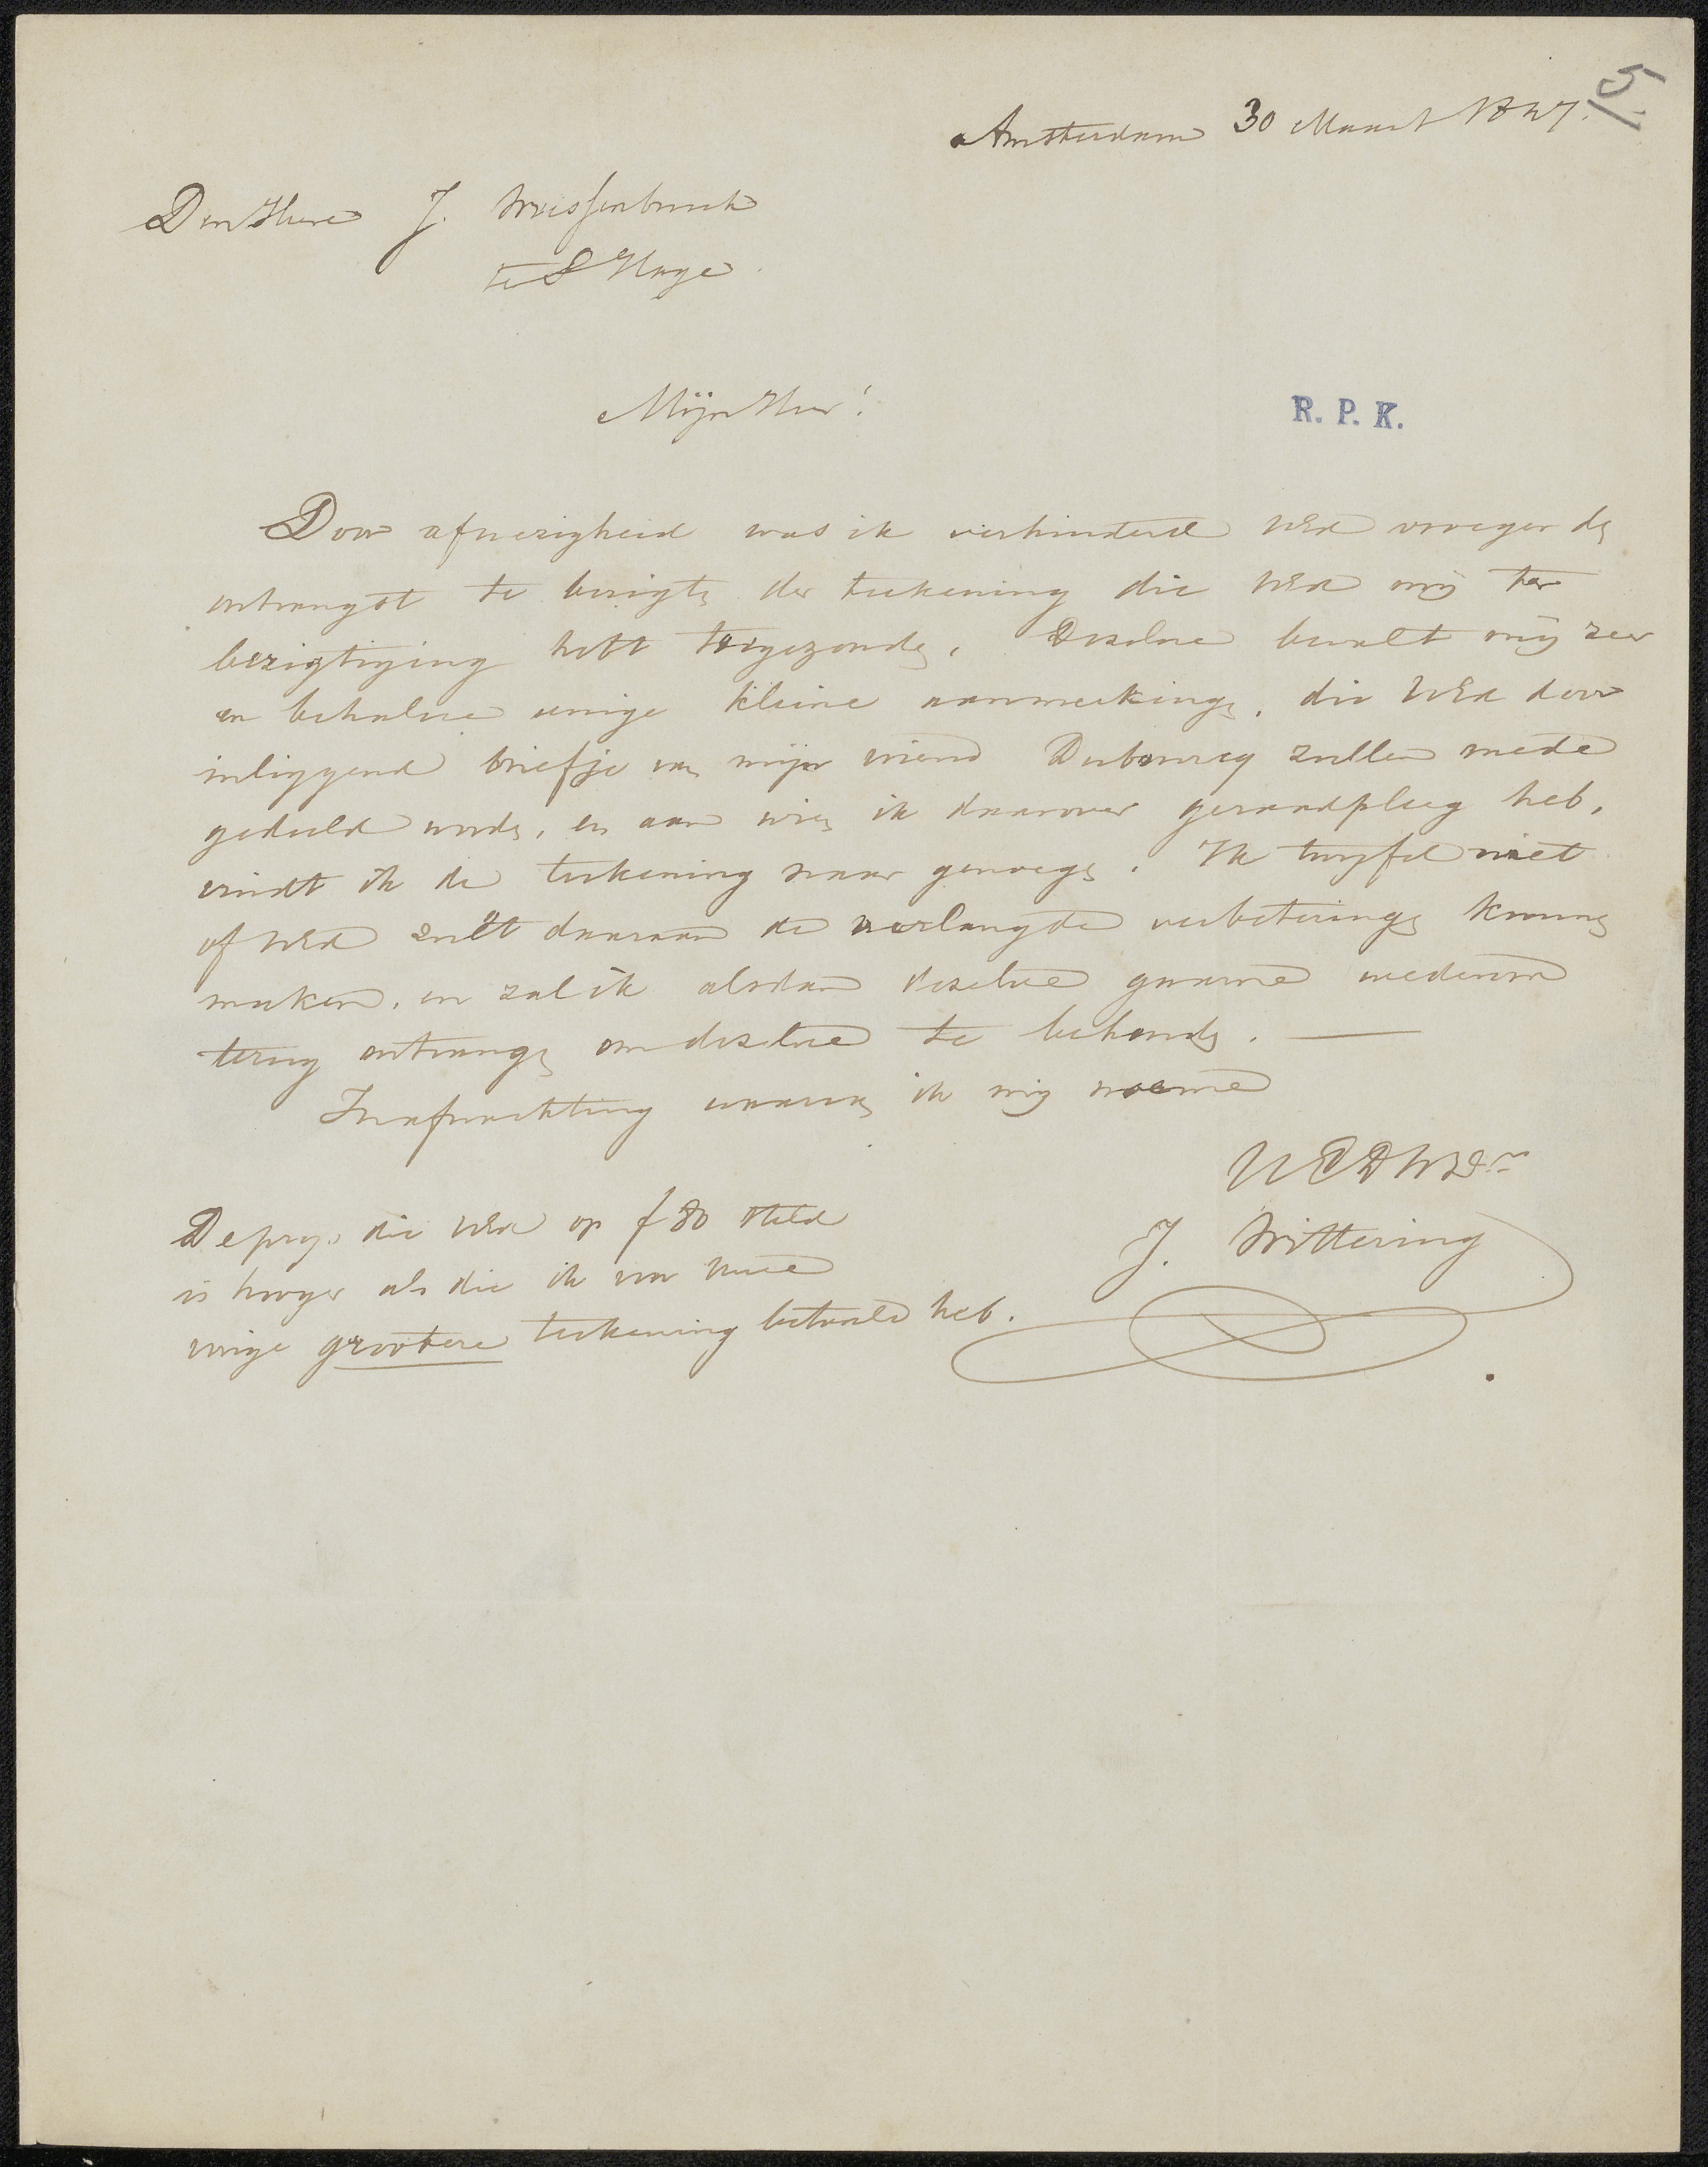 15.
Amsterdam 30 Maart 1847.
Den Heere J. Weissenbruch
te S Hage.
Mijn Heer!
R. P. K.
Door afwezigheid was ik verhinderd UEd vroeger de
ontvangst te berigten der teekening die UEd mij ter
bezigtiging hebt toegezonden. Dezelve bevalt mij zeer
en behalve eenige kleine aanmerkingen, die UEd door
inliggend briefje van mijn vriend Dubourcq zullen mede
gedeeld worden, en aan wien ik daarover geraadpleeg heb,
vindt ik de teekening naar genoegen. Ik twyfel niet
of UEd zult daaraan de verlangde verbeteringen kunnen
maken, en zal ik alsdan dezelve gaarne wederom
terug ontvangen om dezelve te behouden. —
In afwachting waarvan ik mij noeme
UEDWDr
J. Wittering
De prys die UEd op f 80 steld
is hooger als die ik voor twee
eenige grootere teekening betaald heb.